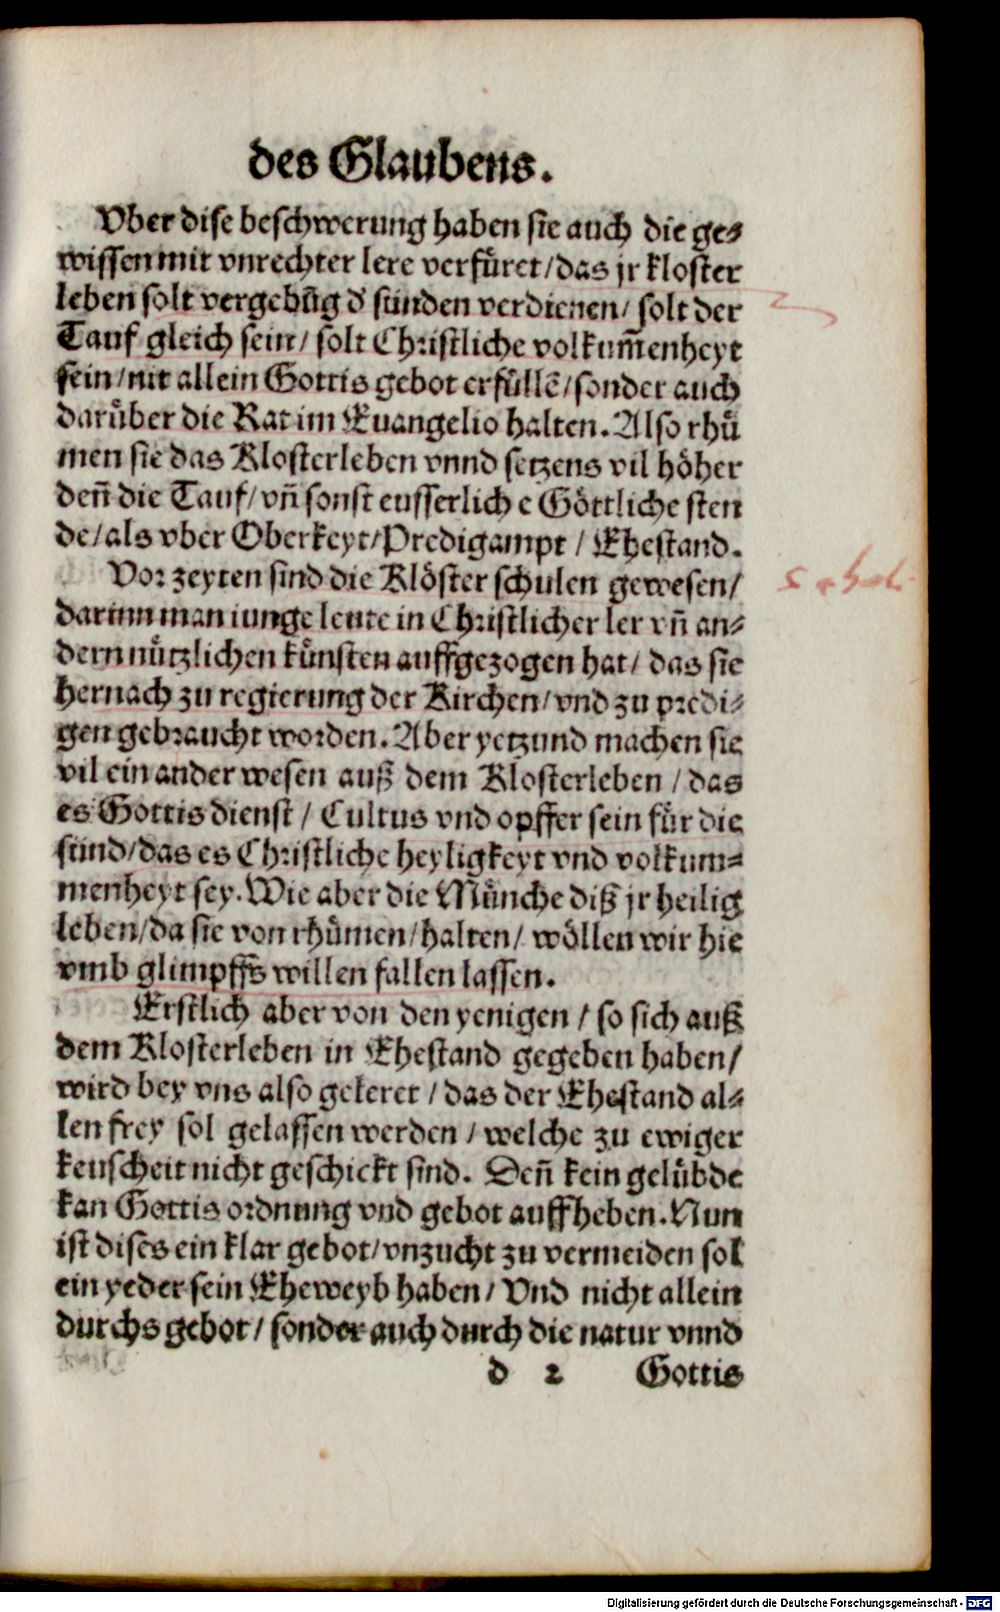 des Glaubens.
Vber dise beschwerung haben sie auch die ge⸗
wissen mit vnrechter lere verfuͤret/das jr kloster
leben solt vergebũg d' sünden verdienen/ solt der
Tauf gleich sein/ solt Christliche volkum̃enheyt
sein/nit allein Gottis gebot erfuͤllẽ/sonder auch
daruͤber die Rat im Euangelio halten. Also rhuͤ
men sie das Klosterleben vnnd setzens vil hoͤher
deñ die Tauf/vñ sonst eusserliche Goͤttliche sten
de/als vber Oberkeyt/Predigampt / Ehestand.
Vor zeyten sind die Kloͤster schulen gewesen/
darinn man iunge leute in Christlicher ler vñ an⸗
dern nuͤtzlichen kuͤnsten auffgezogen hat/ das sie
hernach zu regierung der Kirchen/vnd zu predi⸗
gen gebraucht worden. Aber yetzund machen sie
vil ein ander wesen auß dem Klosterleben /das
es Gottis dienst/ Cultus vnd opffer sein fuͤr die
sünd/das es Christliche heyligkeyt vnd volkum⸗
menheyt sey. Wie aber die Muͤnche diß jr heilig
leben/da sie von rhuͤmen/halten/ woͤllen wir hie
vmb glimpffs willen fallen lassen.
Erstlich aber von den yenigen / so sich auß
dem Klosterleben in Ehestand gegeben haben/
wird bey vns also geleret / das der Ehestand al⸗
len frey sol gelassen werden / welche zu ewiger
keuscheit nicht geschickt sind. Deñ kein geluͤbde
kan Gottis ordnung vnd gebot auffheben. Nun
ist dises ein klar gebot/vnzucht zu vermeiden sol
ein yeder sein Eheweyb haben/ Vnd nicht allein
durchs gebot/ sonder auch durch die natur vnnd
d 2 Gottis
Digitalisierung gefördert durch die Deutsche Forschungsgemeinschaft - DFG